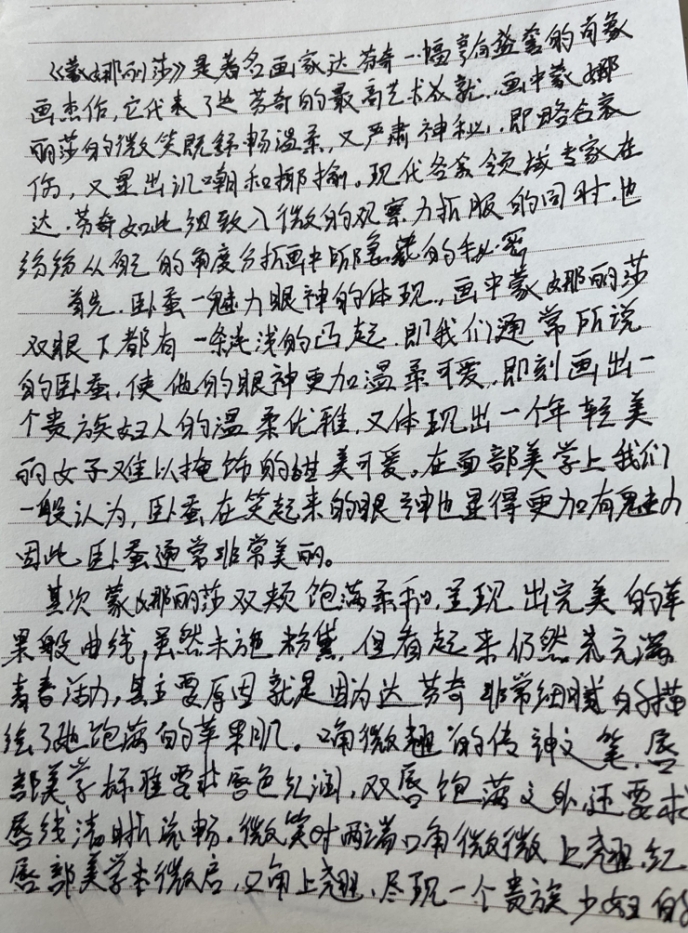 《蒙娜丽莎》是著名画家达芬奇一幅享有盛誉的肖象
画杰作,它代表了达芬奇的最高艺术成就,画中蒙娜
丽莎的微笑既舒畅温柔,又严肃神秘,即略含哀
伤,又显出讥嘲和揶揄。现代各条领域专家在
达.芬奇如此细致入微的观察力折服的同时,也
纷纷从自己的角度分折画中所隐藏的秘密
首先.卧蚕一魅力眼神的体现,画中蒙娜丽莎
双眼下都有一条浅浅的凸起,即我们通常所说
的卧蚕,使他的眼神更加温柔可爱,即刻画出一
个贵族妇人的温柔优雅,又体现出一个年轻美
丽女子难以掩饰的甜美可爱。在面部美学上我们
一般认为,卧蚕在笑起来的眼神也显得更加有魅力
因此卧蚕通常非常美丽。
其次蒙娜丽莎双颊饱满柔和,呈现出完美的苹
果般曲线,虽然未施粉黛,但看起来仍然充满
青春活力,其主要原因就是因为达芬奇非常细腻的描
绘了她饱满的苹果肌。嘴微翘的传神文笔,唇
部美学标准要求唇色红润,双唇饱满之外,还要求
唇线清晰流畅,微笑时两端口角微微上翘,红
唇部美学本微启,口角上翘,尽现一个贵族少妇的